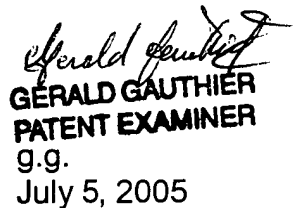 Gerald Gauthier
GERALD GAUTHIER
PATENT EXAMINER
g.g.
July 5, 2005